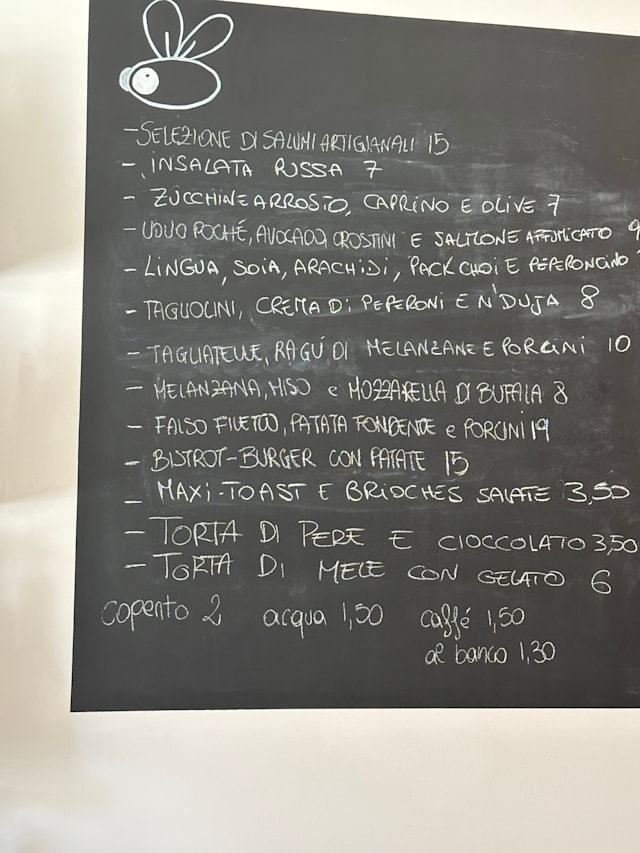 - SELEZIONE DI SALUMI ARTIGIANALI 15
- INSALATA RUSSA 7
- ZUCCHINE ARROSTO, CAPRINO E OLIVE 7
- UOVO POCHÉ, AVOCADO, CROSTINI E SALMONE AFFUMICATO 9
- LINGUA, SOIA, ARACHIDI, PACK CHOI E PEPERONCINO
- TAGLIOLINI, CREMA DI PEPERONI E N'DUJA 8
- TAGLIATELLE, RAGÚ DI MELANZANE E PORCINI 10
- MELANZANA, MISO e MOZZARELLA DI BUFALA 8
- FALSO FILETTO, PATATA FONDENTE e PORCINI 19
- BISTROT-BURGER CON PATATE 15
- MAXI-TOAST E BRIOCHES SALATE 3,50
- TORTA DI PERE E CIOCCOLATO 3,50
- TORTA DI MELE CON GELATO 6
coperto 2 acqua 1,50 caffé 1,50
al banco 1,30